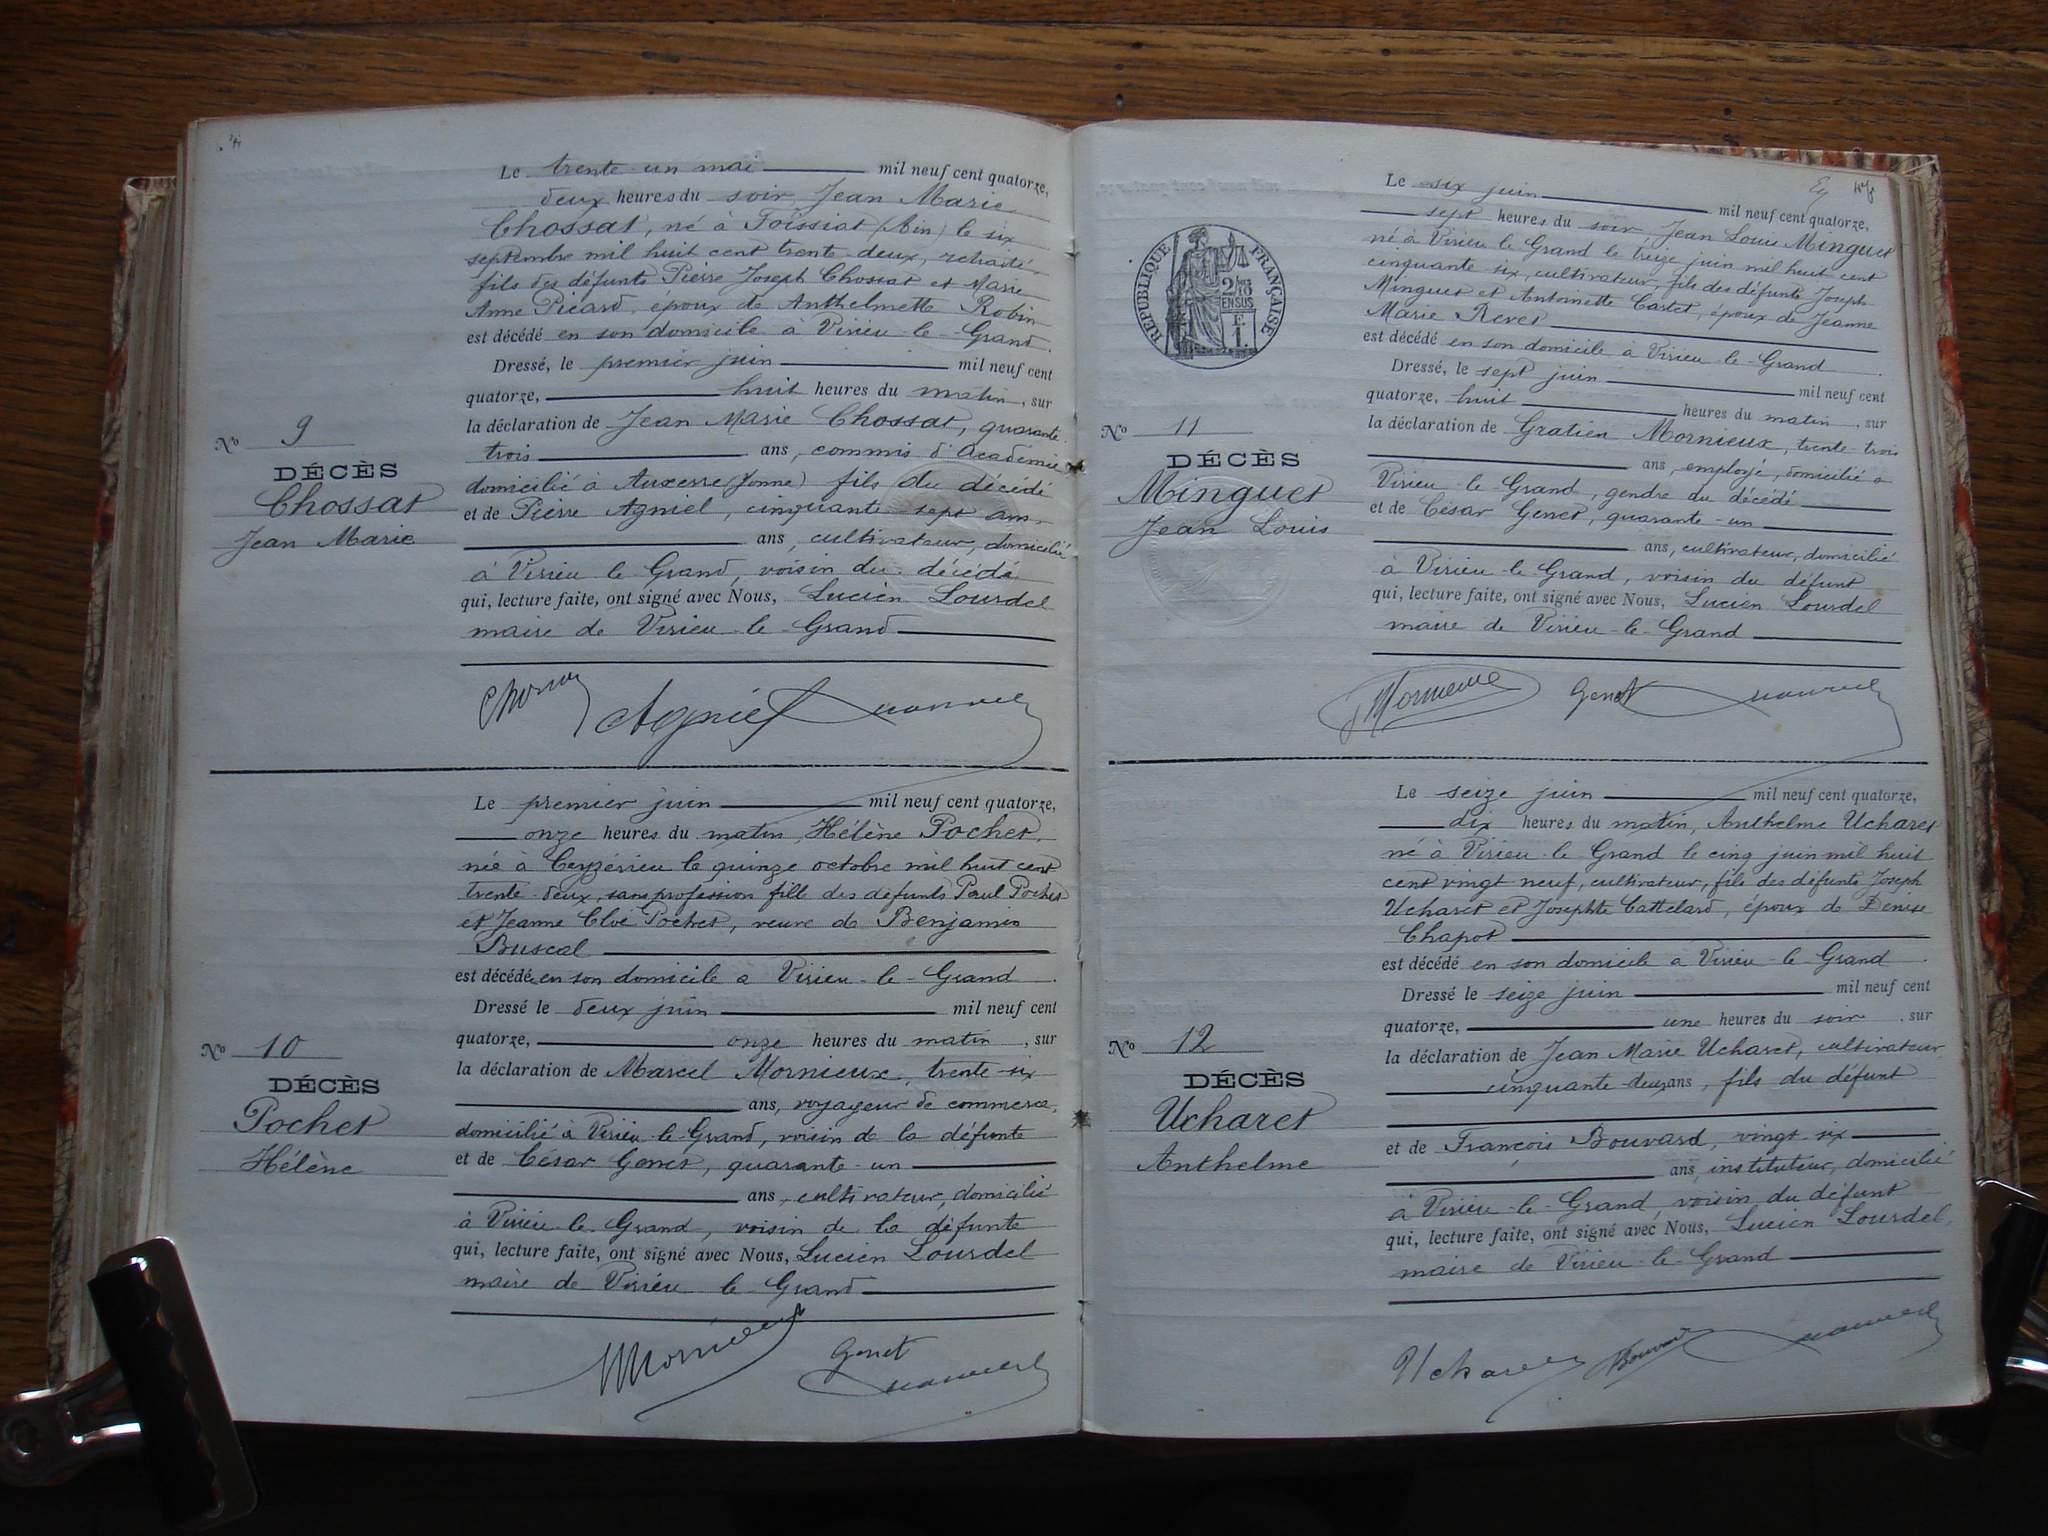 Le trente un mai mil neuf cent quatorze,
deux heures du soir Jean Marie
Chossat, né à Foissiat (Ain) le six
septembre mil huit cent trente-deux, retraité
fils des défunts Pierre Joseph Chossat et Marie
Anne Picard, époux de Anthelmette Robin
est décédé en son domicile à Virieu-le-Grand.
Dressé, le premier juin mil neuf cent
quatorze, huit heures du matin, sur
la déclaration de Jean Marie Chossat, quarante
trois ans, commis d'Academie
domicilié à Auxerre (Yonne) fils du décédé
et de Pierre Agniel, cinquante sept ans
ans, cultivateur, domicilié
à Virieu le Grand, voisin du décédé
qui, lecture faite, ont signé avec Nous, Lucien Lourdel
maire de Virieu-le-Grand
No 9
DÉCÈS
Chossat
Jean Marie
Agniel
Le premier juin mil neuf cent quatorze,
onze heures du matin, Hélène Pochet,
née à Ceyzérieu le quinze octobre mil huit cent
trente-deux, sans profession fille des défunts Paul Pochet
et Jeanne Cloé Pochet, veuve de Benjamin
Buscal
est décédée en son domicile a Virieu-le-Grand.
Dressé le deux juin mil neuf cent
quatorze, onze heures du matin, sur
la déclaration de Marcel Mornieux, trente-six
ans, voyageur de commerce,
domicilié à Virieu-le-Grand, voisin de la défunte
et de César Genet, quarante-un
ans, cultivateur, domicilié
à Virieu-le-Grand, voisin de la défunte
qui, lecture faite, ont signé avec Nous, Lucien Lourdel
maire de Virieu le Grand
No 10
DÉCÈS
Pochet
Hélène
Genet
Le six juin mil neuf cent quatorze,
sept heures du soir Jean Louis Minguet
né à Virieu le Grand le treize juin mil huit cent
cinquante-six, cultivateur, fils des défunts Joseph
Minguet et Antoinette Cartet, époux de Jeanne
Marie Revet
est décédé en son domicile à Virieu-le-Grand.
Dressé, le sept juin mil neuf cent
quatorze, huit heures du matin, sur
la déclaration de Gratien Mornieux, trente-trois
ans, employé, domicilié a
Virieu-le-Grand, gendre du décédé
et de César Genet, quarante-un
ans, cultivateur, domicilié
à Virieu-le-Grand, voisin du défunt
qui, lecture faite, ont signé avec Nous, Lucien Lourdel
maire de Virieu-le-Grand
RÉPUBLIQUE FRANÇAISE
2/10
EN SUS
No 11
DÉCÈS
Minguet
Jean Louis
Genet
Le seize juin mil neuf cent quatorze,
dix heures du matin, Anthelme Ucharet
né à Virieu-le-Grand le cinq juin mil huit
cent vingt neuf, cultivateur, fils des défunts Joseph
Ucharet et Josephte Cattelard, époux de Denise
Chapot
est décédé en son domicile a Virieu-le-Grand.
Dressé le seize juin mil neuf cent
quatorze, une heures du soir, sur
la déclaration de Jean Marie Ucharet, cultivateur
cinquante-deux ans, fils du défunt
et de François Bouvard, vingt-six
ans, instituteur, domicilié
à Virieu-le-Grand, voisin du défunt
qui, lecture faite, ont signé avec Nous, Lucien Lourdel,
maire de Virieu-le-Grand
No 12
DÉCÈS
Ucharet
Anthelme
Ucharet Bouvard